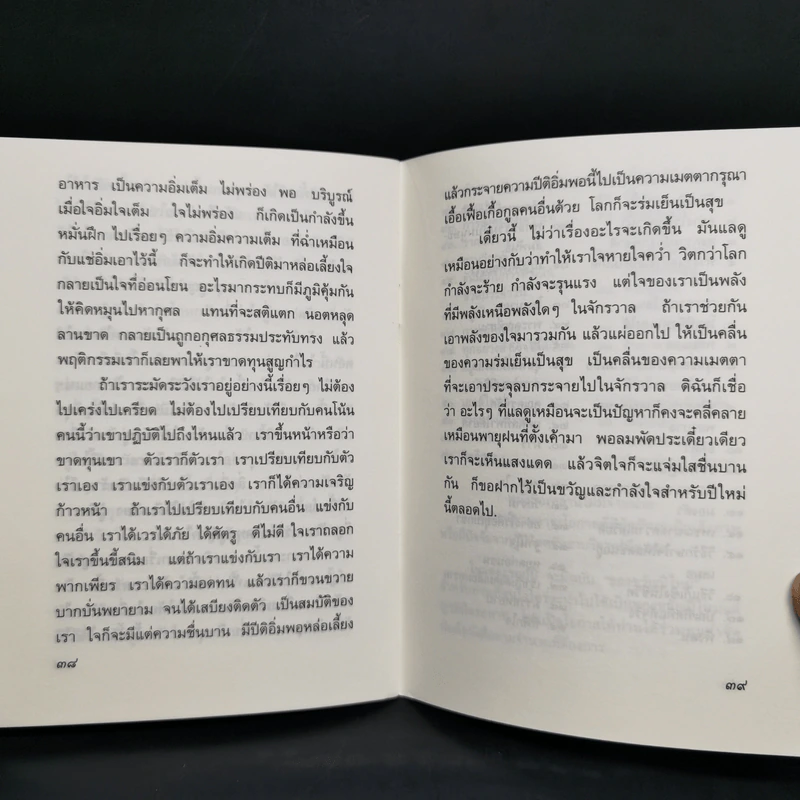 อาหาร เป็นความอิ่มเต็ม ไม่พร่อง พอ บริบูรณ์
เมื่อใจอิ่มใจเต็ม ใจไม่พร่อง ก็เกิดเป็นกำลังขึ้น
หมั่นฝึก ไปเรื่อยๆ ความอิ่มความเต็ม ที่ฉ่ำเหมือน
กับแช่อิ่มเอาไว้นี้ ก็จะทำให้เกิดปีติมาหล่อเลี้ยงใจ
กลายเป็นใจที่อ่อนโยน อะไรมากระทบก็มีภูมิคุ้มกัน
ให้คิดหมุนไปหากุศล แทนที่จะสติแตก นอตหลุด
ลานขาด กลายเป็นถูกอกุศลธรรมประทับทรง แล้ว
พฤติกรรมเราก็เลยพาให้เราขาดทุนสูญกำไร
ถ้าเราระมัดระวังเราอยู่อย่างนี้เรื่อยๆ ไม่ต้อง
ไปเคร่งไปเครียด ไม่ต้องไปเปรียบเทียบกับคนโน้น
คนนี้ว่าเขาปฏิบัติไปถึงไหนแล้ว เราขึ้นหน้าหรือว่า
ขาดทุนเขา ตัวเราก็ตัวเรา เราเปรียบเทียบกับตัว
เราเอง เราแข่งกับตัวเราเอง เราก็ได้ความเจริญ
ก้าวหน้า ถ้าเราไปเปรียบเทียบกับคนอื่น แข่งกับ
คนอื่น เราได้เวรได้ภัย ได้ศัตรู ดีไม่ดี ใจเราถลอก
ใจเราขึ้นขี้สนิม แต่ถ้าเราแข่งกับเรา เราได้ความ
พากเพียร เราได้ความอดทน แล้วเราก็ขวนขวาย
บากบั่นพยายาม จนได้เสบียงติดตัว เป็นสมบัติของ
เรา ใจก็จะมีแต่ความชื่นบาน มีปีติอิ่มพอหล่อเลี้ยง
๓๘
แล้วกระจายความปีติอิ่มพอนี้ไปเป็นความเมตตากรุณา
เอื้อเฟื้อเกื้อกูลคนอื่นด้วย โลกก็จะร่มเย็นเป็นสุข
เดี๋ยวนี้ ไม่ว่าเรื่องอะไรจะเกิดขึ้น มันแลดู
เหมือนอย่างกับว่าทำให้เราใจหายใจคว่ำ วิตกว่าโลก
กำลังจะร้าย กำลังจะรุนแรง แต่ใจของเราเป็นพลัง
ที่มีพลังเหนือพลังใดๆ ในจักรวาล ถ้าเราช่วยกัน
เอาพลังของใจมารวมกัน แล้วแผ่ออกไป ให้เป็นคลื่น
ของความร่มเย็นเป็นสุข เป็นคลื่นของความเมตตา
ที่จะเอาประจุลบกระจายไปในจักรวาล ดิฉันก็เชื่อ
ว่า อะไรๆ ที่แลดูเหมือนจะเป็นปัญหาก็คงจะคลี่คลาย
เหมือนพายุฝนที่ตั้งเค้ามา พอลมพัดประเดี๋ยวเดียว
เราก็จะเห็นแสงแดด แล้วจิตใจก็จะแจ่มใสชื่นบาน
กัน ก็ขอฝากไว้เป็นขวัญและกำลังใจสำหรับปีใหม่
นี้ตลอดไป.
๓๙